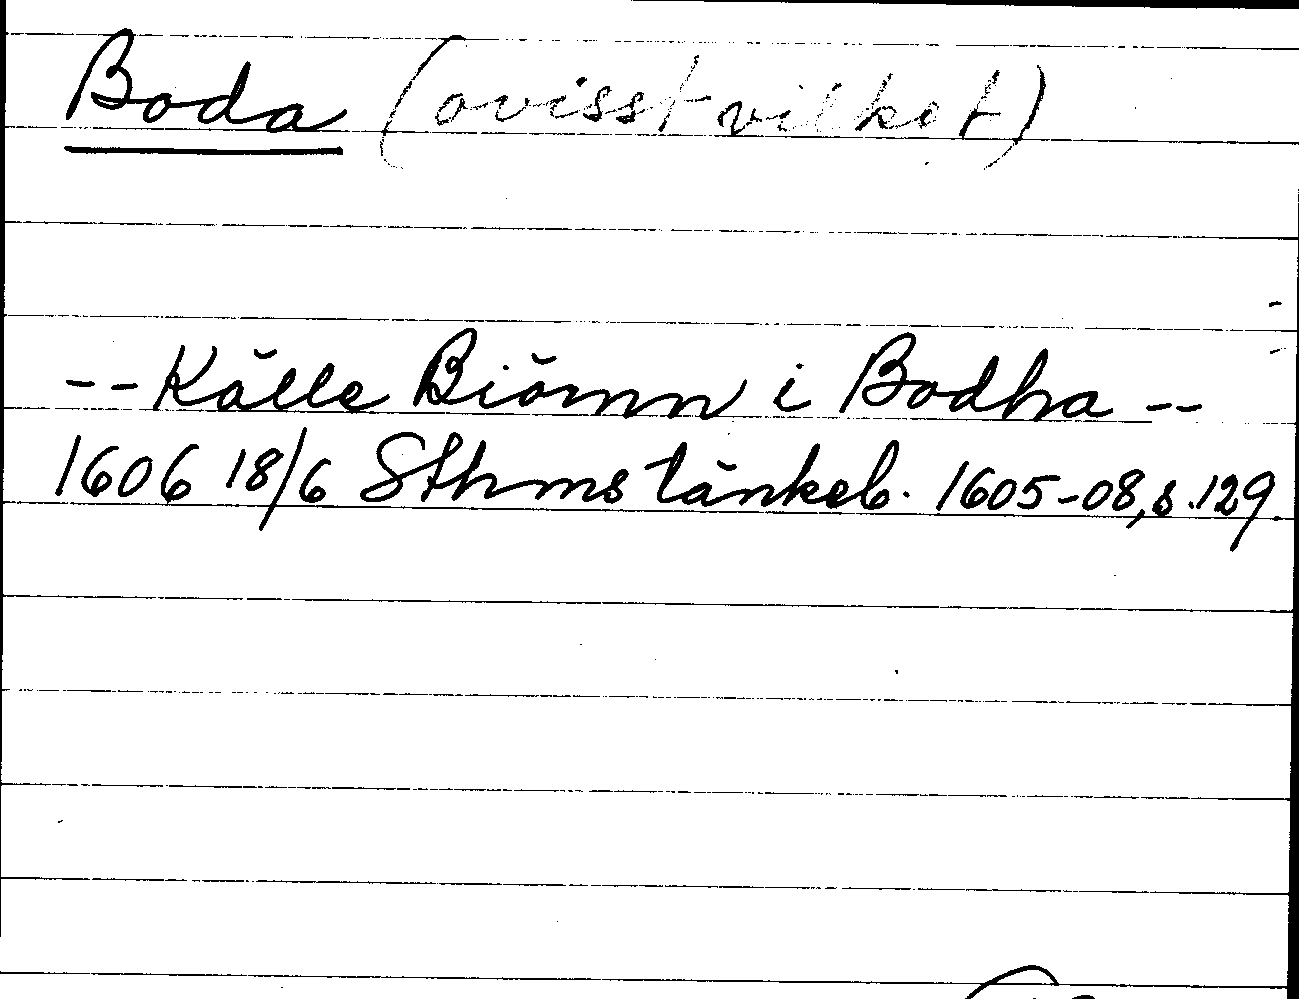 Boda (ovisst vilket)
-- Kålle Biömn i Bodha --
1606 18/6 Sthms tänkeb. 1605-08, s. 129.